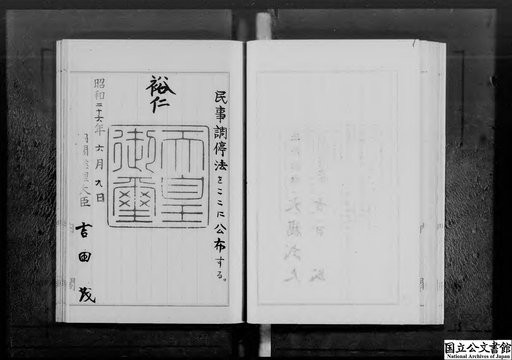 民事調停法をここに公布する。
裕仁
天皇御璽
昭和二十六年六月九日
内閣総理大臣 吉田茂
国立公文書館
National Archives of Japan